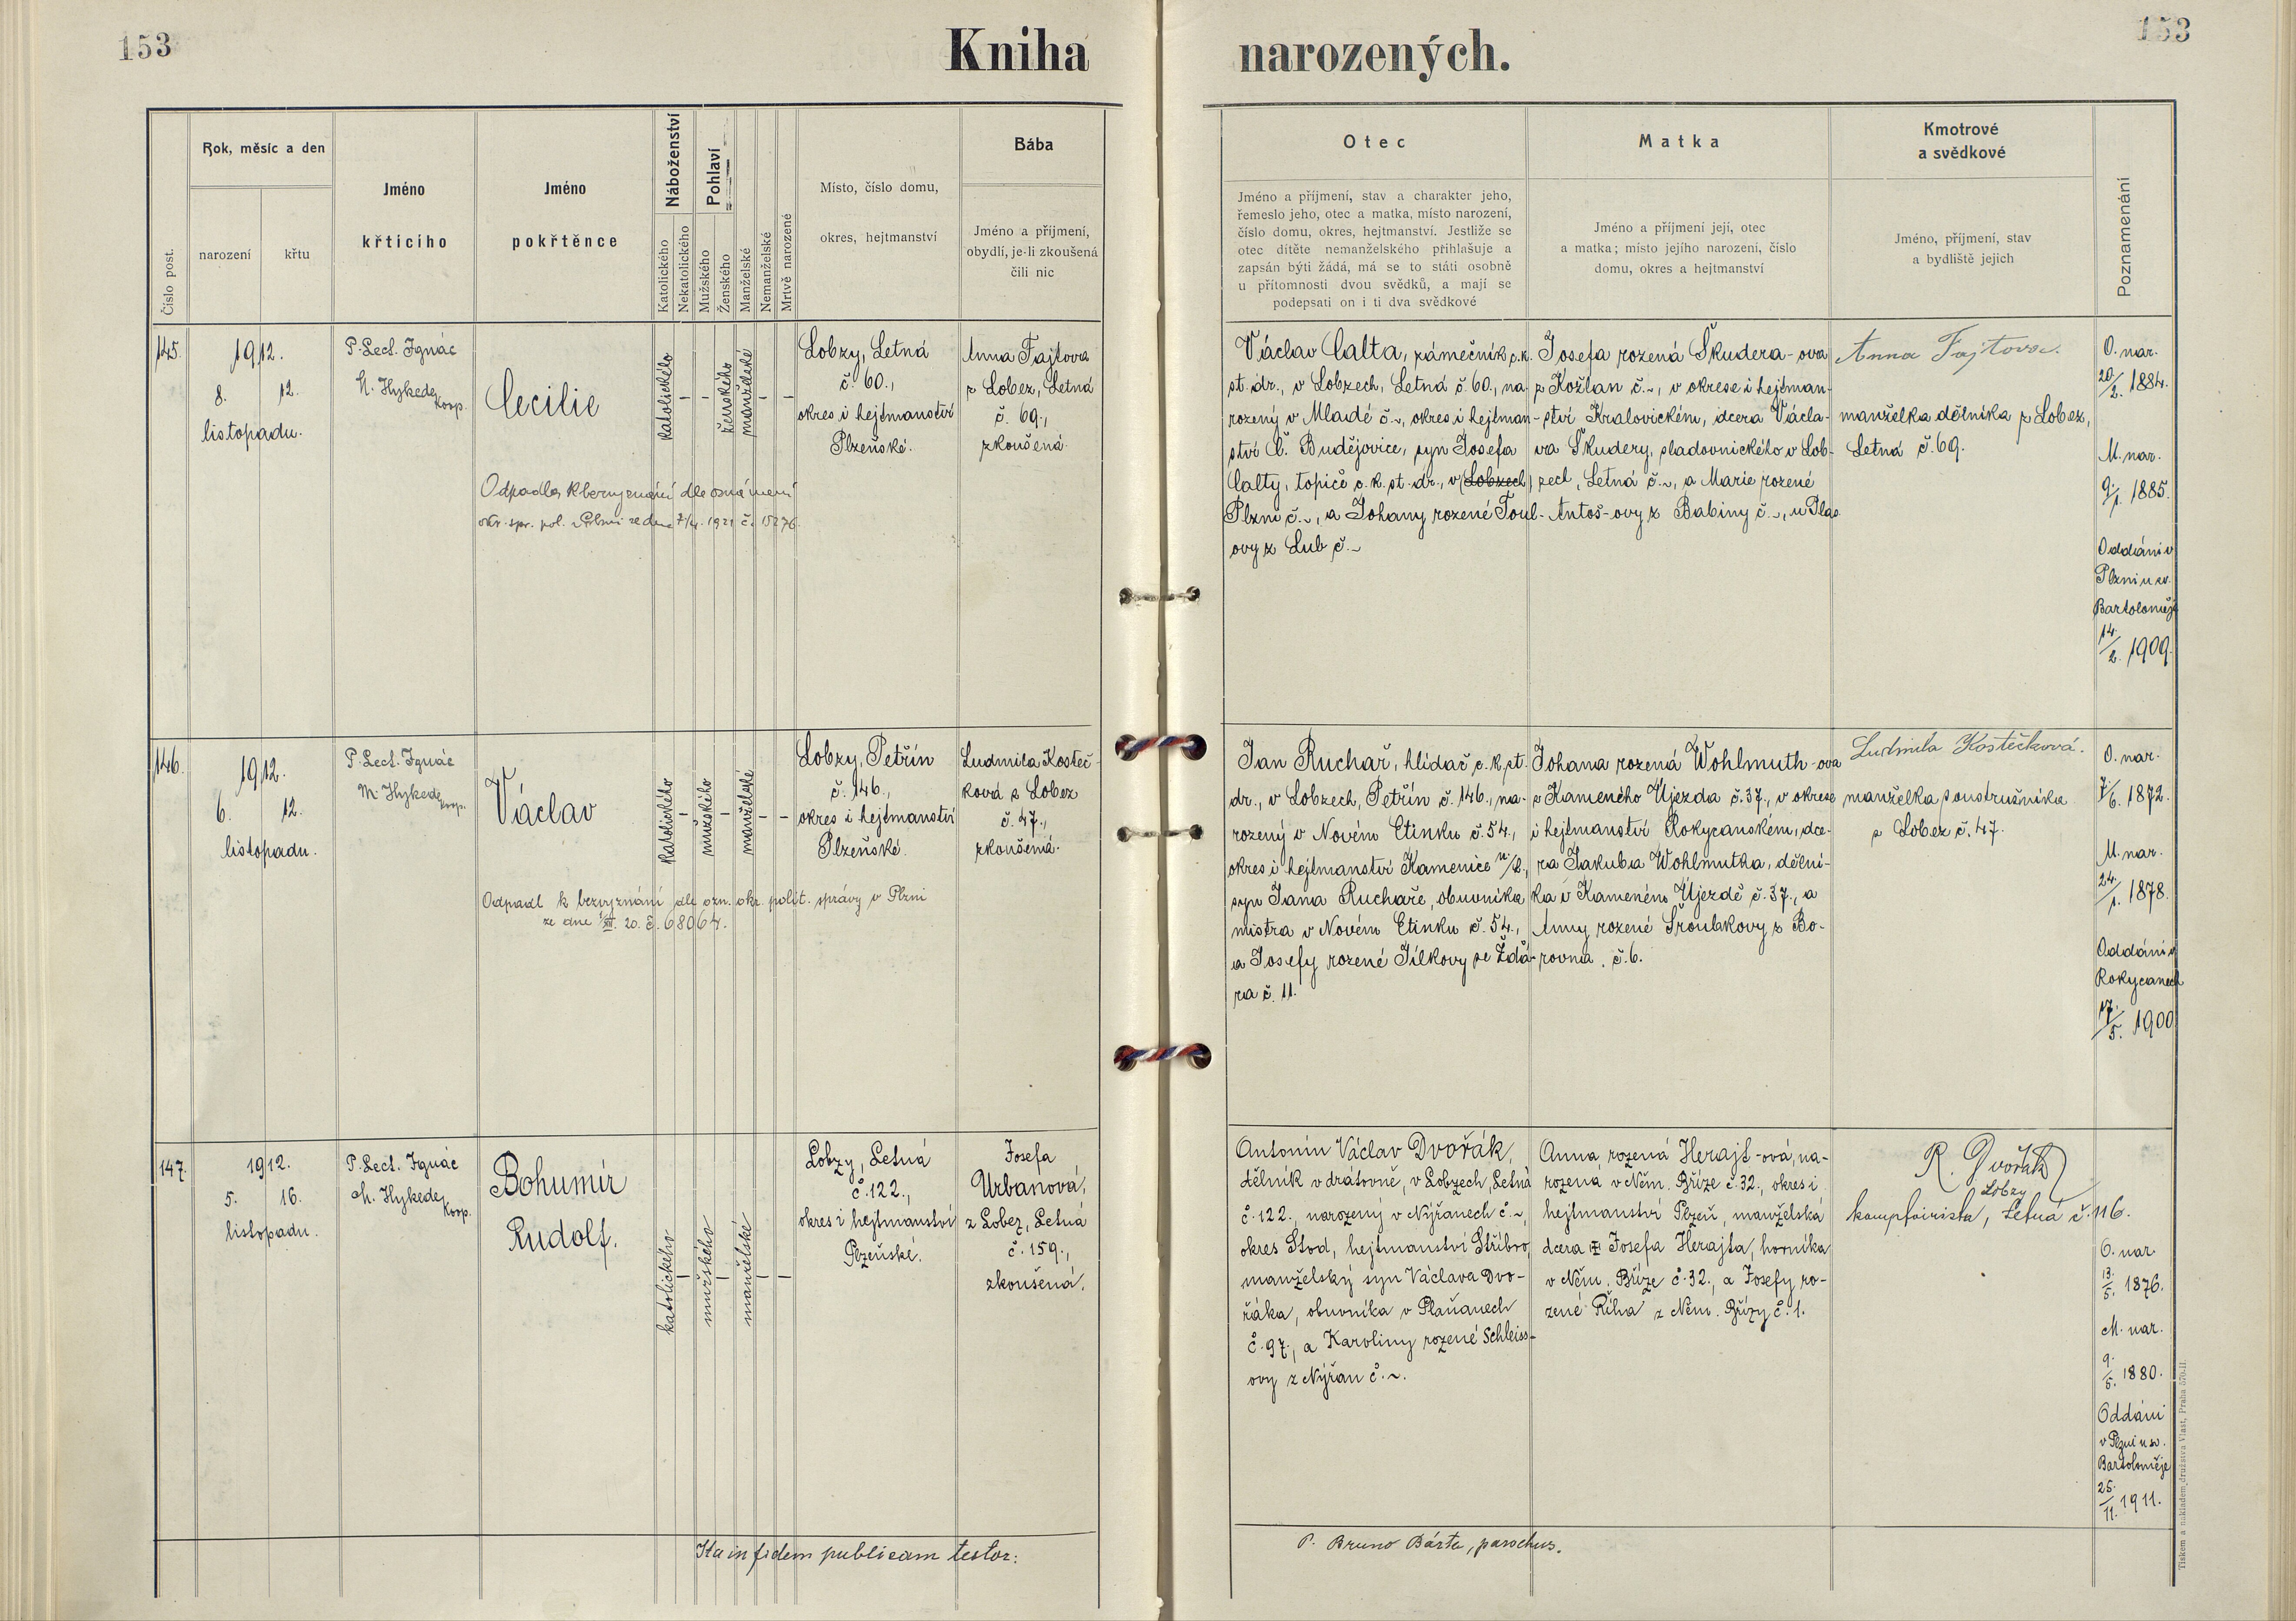 153
Kniha narozených.
153
Číslo post.
Rok, měsíc a den
narození
křtu
Jméno
křtícího
Jméno
pokřtěnce
Náboženství
Katolického
Nekatolického
Pohlaví
Mužského
Ženského
Manželské
Nemanželské
Mrtvě narozené
Místo, číslo domu,
okres, hejtmanství
Bába
Jméno a příjmení,
obydlí, je-li zkoušená
čili nic
Otec
Jméno a příjmení, stav a charakter jeho,
řemeslo jeho, otec a matka, místo narození,
číslo domu, okres, hejtmanství. Jestliže se
otec dítěte nemanželského přihlašuje a
zapsán býti žádá, má se to státi osobně
u přítomnosti dvou svědků, a mají se
podepsati on i ti dva svědkové
Matka
Jméno a příjmení její, otec
a matka; místo jejího narození, číslo
domu, okres a hejtmanství
Kmotrové
a svědkové
Jméno, příjmení, stav
a bydliště jejich
Poznamenání
145.
1912.
8. 12.
listopadu.
P. Lect. Ignác
M. Hykede,
koop.
Cecilie
katolického
-
-
ženského
manželské
-
-
Lobzy, Letná
č. 60.,
okres i hejtmanství
Plzeňské.
Anna Fajtova
z Lobez, Letná
č. 69.,
zkoušená.
Odpadla k bezvyznání dle oznámení
okr. spr. pol. v Plzni ze dne 7/4. 1921 č. 15276.
Václav Calta, zámečník c. k.
st. dr., v Lobzech, Letná č. 60., na-
rozený v Mladé č. ~, okres i hejtman-
ství Č. Budějovice, syn Josefa
Calty, topiče c. k. st. dr., v (Lobzech)
Plzni č. ~, a Johany rozené Toul-
ovy z Lub č. ~
Josefa rozená Škudera-ova
z Kožlan č. ~, v okrese i hejtman-
ství Kralovickém, dcera Václa-
va Škudery, sladovnického v Lob-
zech, Letná č. ~, a Marie rozené
Antoš-ovy z Babiny č. ~, u Plas
Anna Fajtova.
manželka dělníka z Lobez,
Letná č. 69.
O. nar.
20./2. 1884.
M. nar.
9./1. 1885.
Oddáni v
Plzni u sv.
Bartoloměje
14./2. 1909.
146.
1912.
6. 12.
listopadu.
P. Lect. Ignác
M. Hykede,
koop.
Václav
katolického
-
mužského
-
manželské
-
-
Lobzy, Petřín
č. 146.,
okres i hejtmanství
Plzeňské.
Ludmila Kosteč-
ková z Lobez
č. 47.,
zkoušená.
Odpadl k bezvyznání dle ozn. okr. polit. správy v Plzni
ze dne 1/XII. 20. č. 68064.
Jan Ruchař, hlídač c. k. st.
dr., v Lobzech, Petřín č. 146., na-
rozený v Novém Etinku č. 54.,
okres i hejtmanství Kamenice n/L.,
syn Jana Ruchaře, obuvníka
mistra v Novém Etinku č. 54.,
a Josefy rozené Jílkovy ze Žďá-
ra č. 11.
Johana rozená Wohlmuth-ova
z Kameného Újezda č. 37., v okrese
i hejtmanství Rokycanském, dce-
ra Jakuba Wohlmutha, dělní-
ka v Kameném Újezdě č. 37., a
Anny rozené Šroubkovy z Bo-
rovna. č. 6.
Ludmila Kostečková.
manželka soustružníka
z Lobez č. 47.
O. nar.
7./6. 1872.
M. nar.
24./1. 1878.
Oddáni v
Rokycanech
17./5. 1900
147.
1912.
5. 16.
listopadu.
P. Lect. Ignác
M. Hykede,
koop.
Bohumír
Rudolf.
katolického
-
mužského
-
manželské
-
-
Lobzy, Letná
č. 122.,
okres i hejtmanství
Plzeňské.
Josefa
Urbanová,
z Lobez, Letná
č. 159.,
zkoušená.
Antonín Václav Dvořák,
dělník v drátovně, v Lobzech, Letná
č. 122., narozený v Nýřanech č. ~,
okres Stod, hejtmanství Stříbro,
manželský syn Václava Dvo-
řáka, obuvníka v Plaňanech
č. 97, a Karoliny rozené Schleiss-
ovy z Nýřan č. ~.
Anna, rozená Herajt-ová, na-
rozená v Něm. Bříze č. 32., okres i
hejtmanství Plzeň, manželská
dcera Josefa Herajta, horníka
v Něm. Bříze č. 32., a Josefy ro-
zené Říha z Něm. Břízy č. 1.
R. Dvořák
Lobzy
komptoirista, Letná č. 116.
O. nar.
13./5. 1876.
M. nar.
9./5. 1880.
Oddáni
v Plzni u sv.
Bartoloměje
25./11. 1911.
Ita in fidem publicam testor:
P. Bruno Bárta, parochus.
Tiskem a nákladem družstva Vlast, Praha 570-II.